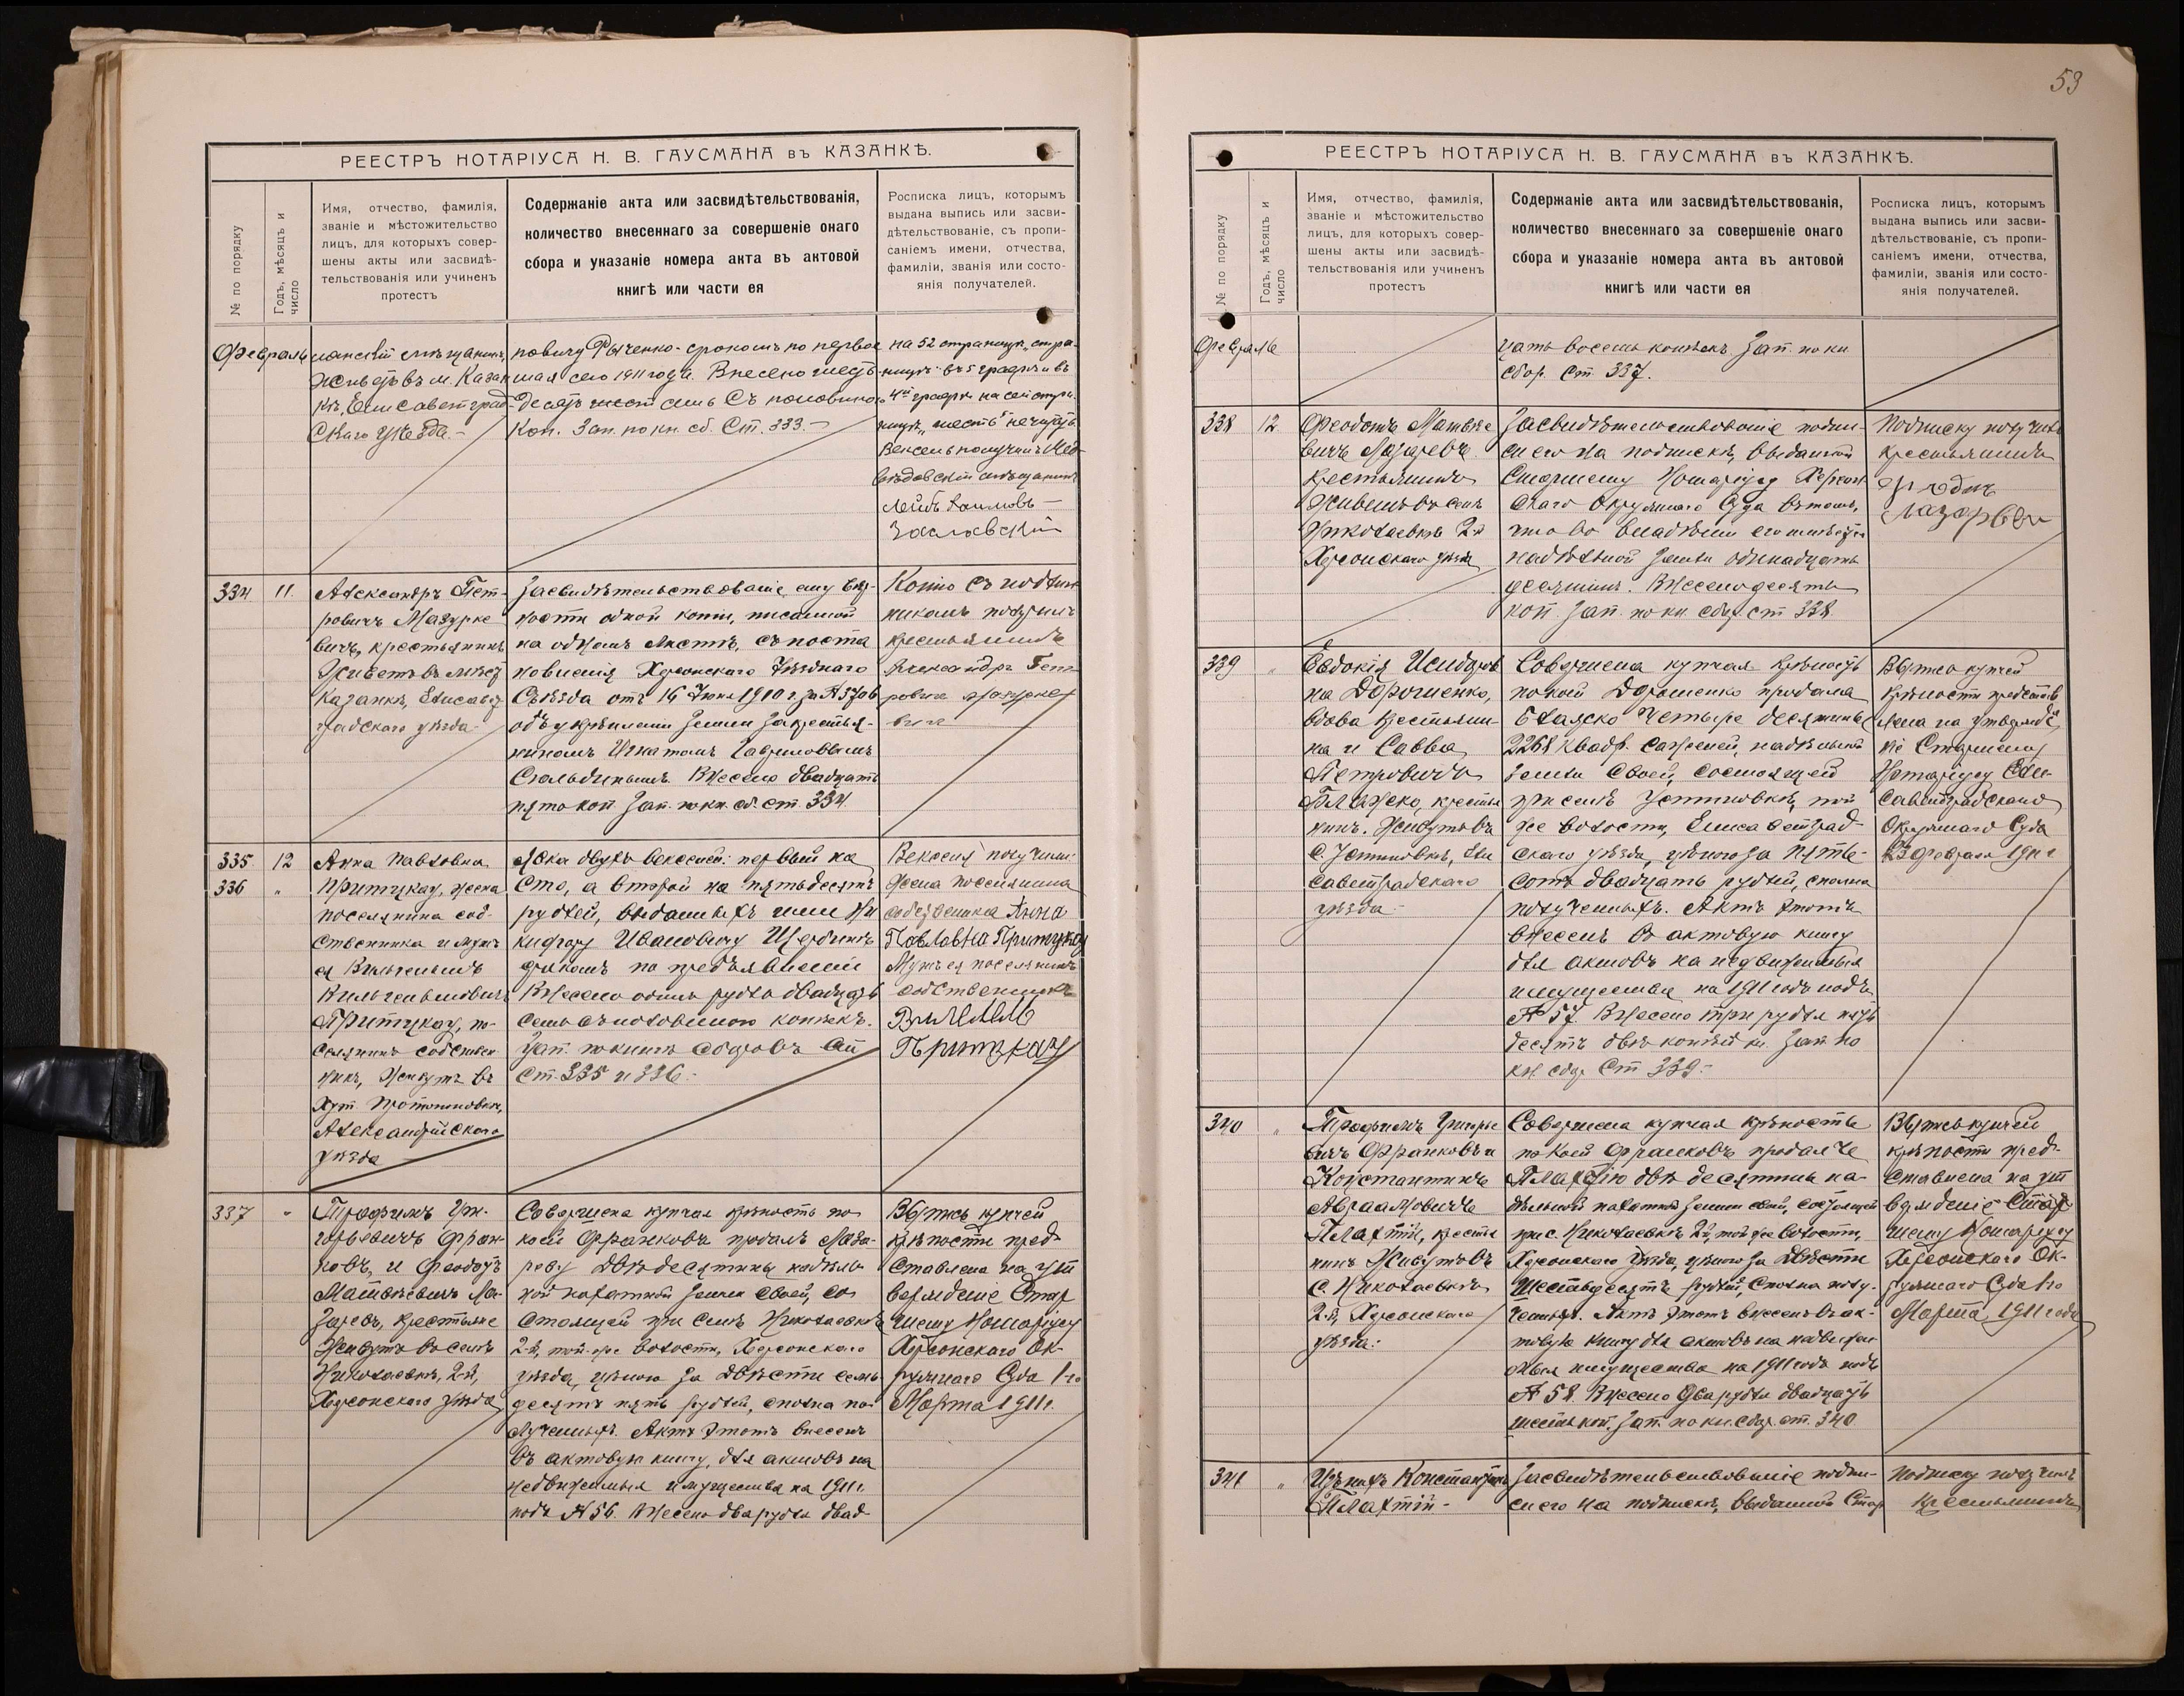 53
РЕЕСТРЪ НОТАРІУСА Н. В. ГАУСМАНА въ КАЗАНКѢ.
№ по порядку
Годъ, мѣсяцъ и
число
Имя, отчество, фамилія,
званіе и мѣстожительство
лицъ, для которыхъ совер-
шены акты или засвидѣ-
тельствованія или учиненъ
протестъ
Содержаніе акта или засвидѣтельствованія,
количество внесеннаго за совершеніе онаго
сбора и указаніе номера акта въ актовой
книгѣ или части ея
Росписка лицъ, которымъ
выдана выпись или засви-
дѣтельствованіе, съ пропи-
саніемъ имени, отчества,
фамиліи, званія или состо-
янія получателей.
Февраль
мѣщанинъ,
живетъ въ м. Казан
кѣ, Елисаветград-
скаго уѣзда.-
повичу Рыченко-срокомъ по первое
мая сего 1911 года. Внесено шесть
десятъ шесть съ половиною
коп. Зап. по кн. сб. Ст. 333.-
на 52 страницѣ, стра-
ницѣ въ 5 графѣ и въ
4й графѣ на сей стра-
ницѣ "шесть" не читать
Вексель получилъ Мед-
вѣдовскій мѣщанинъ
Лейб Хаимовъ
Заславский
334 11
Александръ Пет-
ровичъ Мазурке
вичъ, крестьянинъ
Живетъ въ мѣст
Казанкѣ, Елисавет
градскаго уѣзда
Засвидѣтельствованіе ему вѣр-
ности одной копіи, писанной
на одномъ листѣ, съ поста
новленія Херсонскаго Уѣзднаго
Съѣзда отъ 16 Іюня 1910 г. за № 5706
объ укрѣпленіи земли за крестья-
ниномъ Игнатомъ Гавриловымъ
Внесено двадцать
пять коп Зап. по кн. сб. ст. 334
Копію съ подлин
никомъ получилъ
крестьянинъ
Александръ Пет
ровичъ Мазурке
вичъ
335 12
336 "
Анна Павловна
Притцкау, жена
поселянина соб-
ственника и мужъ
ея Вильгельмъ
Вильгельмовичъ
Притцкау, по-
селянинъ собствен
никъ, Живутъ въ
Хут.
Александрійскаго
уѣзда
Явка двухъ векселей: первый на
Сто, а второй на пятьдесятъ
рублей, выданныхъ ими Ни
кифору Ивановичу
по предъявленіи
Внесено одинъ рубль двадцать
семь съ половиною копѣекъ.
Зап. по книгѣ сборовъ
Ст. 335 и 336.-
Векселя получили:
Жена поселянина
собственника Анна
Повловна Притцкау
Мужъ ея поселянинъ
собственникъ
Притцкау
337 "
Трофимъ Гри-
горьевичъ Фран-
ковъ, и Феодотъ
Матвѣевичъ Ла-
заревъ, крестьяне
Живутъ въ селѣ
Николаевкѣ, 2-й,
Херсонскаго уѣзда
Совершена купчая крѣпость по
коей Франковъ продалъ Лаза-
реву двѣ десятины надѣль
ной пахатной земли своей, со
стоящей при селѣ Николаевкѣ
2-й, той-же волости, Херсонскаго
уѣзда, цѣною за двѣсти семь
десятъ пять рублей, сполна по-
лученныхъ. Актъ этотъ внесенъ
въ актовую книгу, для актовъ на
недвижимыя имущества на 1911 г.
подъ № 56. Внесено два рубля двад-
Выпись купчей
крѣпости пред-
ставлена на ут
вержденіе Стар
шему Нотаріусу
Херсонскаго Ок-
ружнаго Суда 1-го
Марта 1911 г.
РЕЕСТРЪ НОТАРІУСА Н. В. ГАУСМАНА въ КАЗАНКѢ.
№ по порядку
Годъ, мѣсяцъ и
число
Имя, отчество, фамилія,
званіе и мѣстожительство
лицъ, для которыхъ совер-
шены акты или засвидѣ-
тельствованія или учиненъ
протестъ
Содержаніе акта или засвидѣтельствованія,
количество внесеннаго за совершеніе онаго
сбора и указаніе номера акта въ актовой
книгѣ или части ея
Росписка лицъ, которымъ
выдана выпись или засви-
дѣтельствованіе, съ пропи-
саніемъ имени, отчества,
фамиліи, званія или состо-
янія получателей.
Февраль
цать восемь копѣекъ. Зап. по кн
сбор. Ст. 337.
338 12
Феодотъ Матвѣе
вичъ Лазаревъ
крестьянинъ
Живетъ въ селѣ
Николаевкѣ 2-й
Херсонскаго уѣзда
Засвидѣтельствованіе подпи-
си его на подпискѣ, выданной
Старшему Нотаріусу Херсон
скаго Окружнаго Суда въ томъ,
что во владѣніи его имѣется
надѣльной земли одинадцать
десятинъ. Внесено десять
коп. Зап. по кн. сбор. ст 338
Подписку получилъ
крестьянинъ
Лазарѣвъ
339 "
Евдокія Исидоров
на Дорошенко,
вдова крестьяни
на и Савва
Петровичъ
крестья
нинъ. Живутъ въ
с. Устиновкѣ, Ели
саветградскаго
уѣзда.-
Совершена купчая крѣпость
по коей Дорошенко продала
четыре десятины
2268 квадр. саженей, надѣльной
земли своей, состоящей
при селѣ Устиновкѣ, той
же волости, Елисаветград-
скаго уѣзда, цѣною за пять-
сотъ двадцать рублей, сполна
полученныхъ. Актъ этотъ
внесенъ въ актовую книгу
для актовъ на недвижимыя
имущества на 1911 годъ подъ
№ 57. Внесено три рубля пять
десятъ двѣ копѣйки. Зап по
кн. сбор Ст 339.-
Выпись купчей
крѣпости представ
лена на утвержде
ніе Старшему
Нотаріусу Ели-
саветградскаго
Окружнаго Суда
23 Февраля 1911 г
340 "
Трофимъ Григорье
вичъ Франковъ и
Константинъ
Авраамовичъ
Плахтій, крестья
нинъ Живутъ въ
с. Николаевкѣ
2-й, Херсонскаго
уѣзда.-
Совершена купчая крѣпость
по коей Франковъ продалъ
Плахтію двѣ десятины на-
дѣльной пахатной земли своей, состоящей
при с. Николаевкѣ 2-й, той же волости,
Херсонскаго уѣзда, цѣною за двѣсти
шестьдесятъ рублей, сполна полу-
ченныхъ. Актъ этотъ внесенъ въ ак-
товую книгу для актовъ на недвижи-
мыя имущества на 1911 годъ подъ
№ 58. Внесено два рубля двадцать
шесть коп. Зап. по кн. сбор. ст. 340
Выпись купчей
крѣпости пред-
ставлена на ут
вержденіе Стар
шему Нотаріусу
Херсонскаго Ок-
ружнаго Суда 1-го
Марта 1911 года
341 "
Изъ нихъ Константинъ
Плахтій-
Засвидѣтельствованіе подпи-
си его на подпискѣ, выданной Стар
Подписку получилъ
крестьянинъ